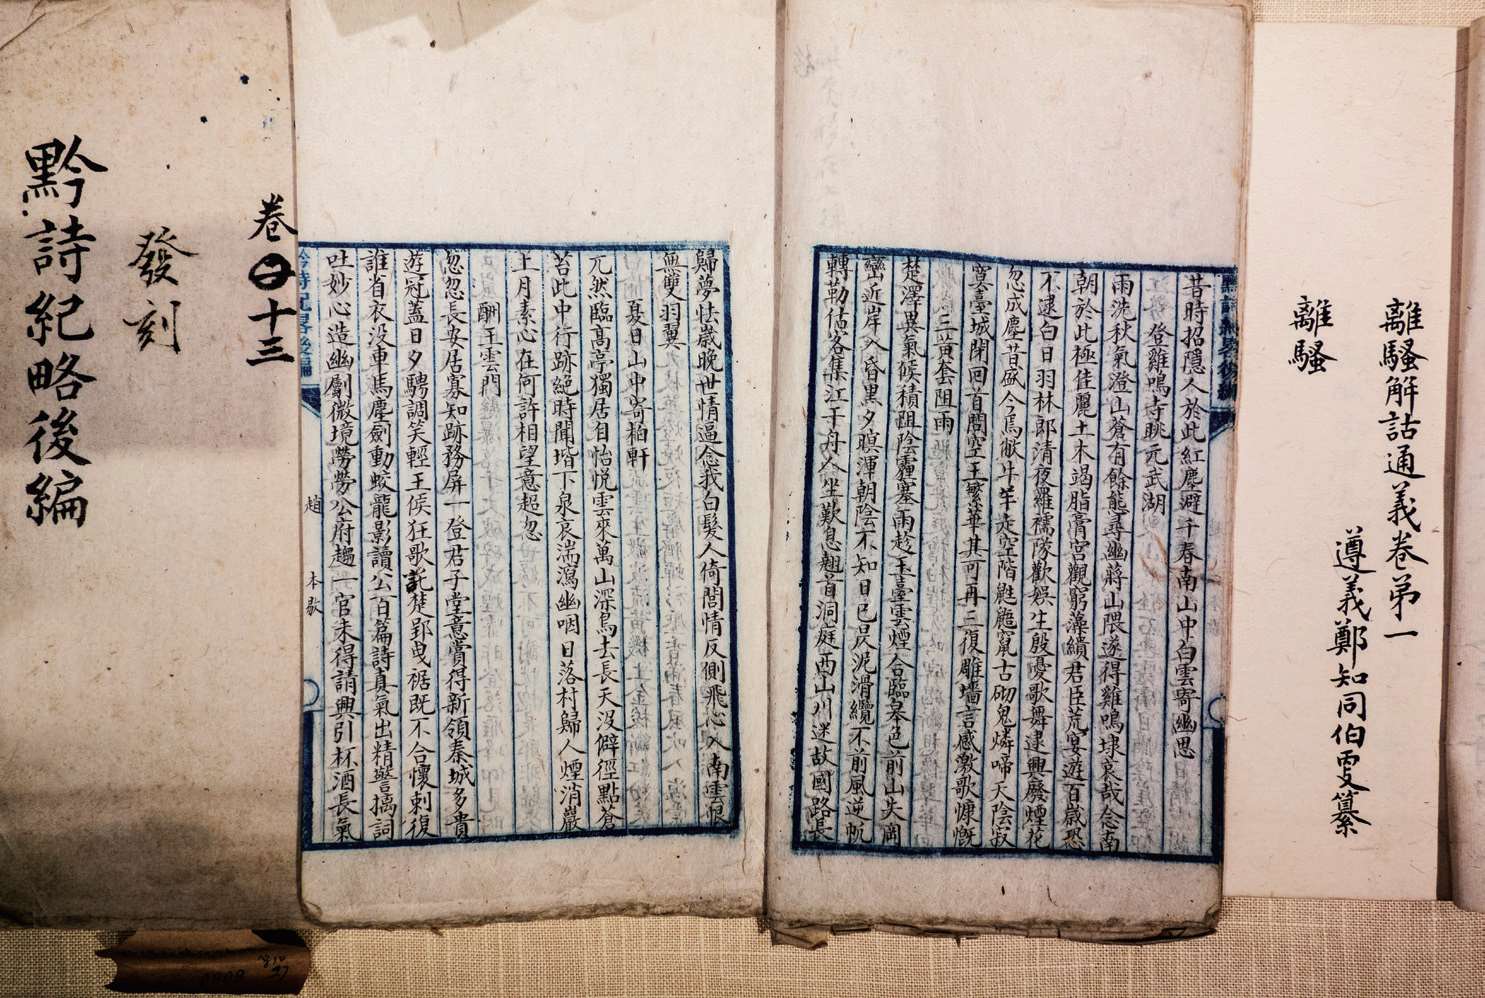 離騷解詁通義卷第一
遵義鄭知同伯更纂
離騷
昔時招隱人於此紅塵避千春南山中白雲寄幽思
登雞鳴寺眺元武湖
雨洗秋氣澄山蒼有餘態尋幽蔣山隈遂得雞鳴埭哀哉念南
朝於此極佳麗土木竭脂膏宮觀窮藻繢君臣荒宴遊百歲恐
不逮白日羽林郎清夜羅襦隊歡娛生殷憂歌舞逮興廢煙花
忽成塵昔盛今焉敝斗牛走空階鼪鼯竄古砌鬼燐啼天陰寂
寞臺城閉回首問空王繁華其可再三復雕墻言感激歌慷慨
三黃套阻雨
楚澤異氣候積阻陰霾塞雨趁玉臺雲煙合臨皋色前山失岡
巒近岸入昏黑夕暝渾朝陰不知日已昃泥滑纜不前風逆帆
轉勒估客集江干舟人坐歎息翹首洞庭西山川迷故國路長
歸夢怯歲晚世情逼念我白髮人倚閭情反側飛心入南雲恨
無雙羽翼
夏日山中寄柏軒
兀然臨高亭獨居自怡悅雲來萬山深鳥去長天沒僻徑點蒼
苔此中行跡絕時聞堦下泉哀湍瀉幽咽日落村歸人煙消巖
上月素心在何許相望意超忽
酬王雲門
忽忽長安居寡知跡務屏一登君子堂意賞得新領秦城多貴
遊冠蓋日夕騁調笑輕王侯狂歌託楚郢曳裾既不合懷刺復
誰省衣沒車馬塵劍動蛟龍影讀公百篇詩真氣出精警摛詞
吐妙心造幽劇微境勞勞公府趨一官未得請興引杯酒長氣
卷十三
發刻
黔詩紀略後編